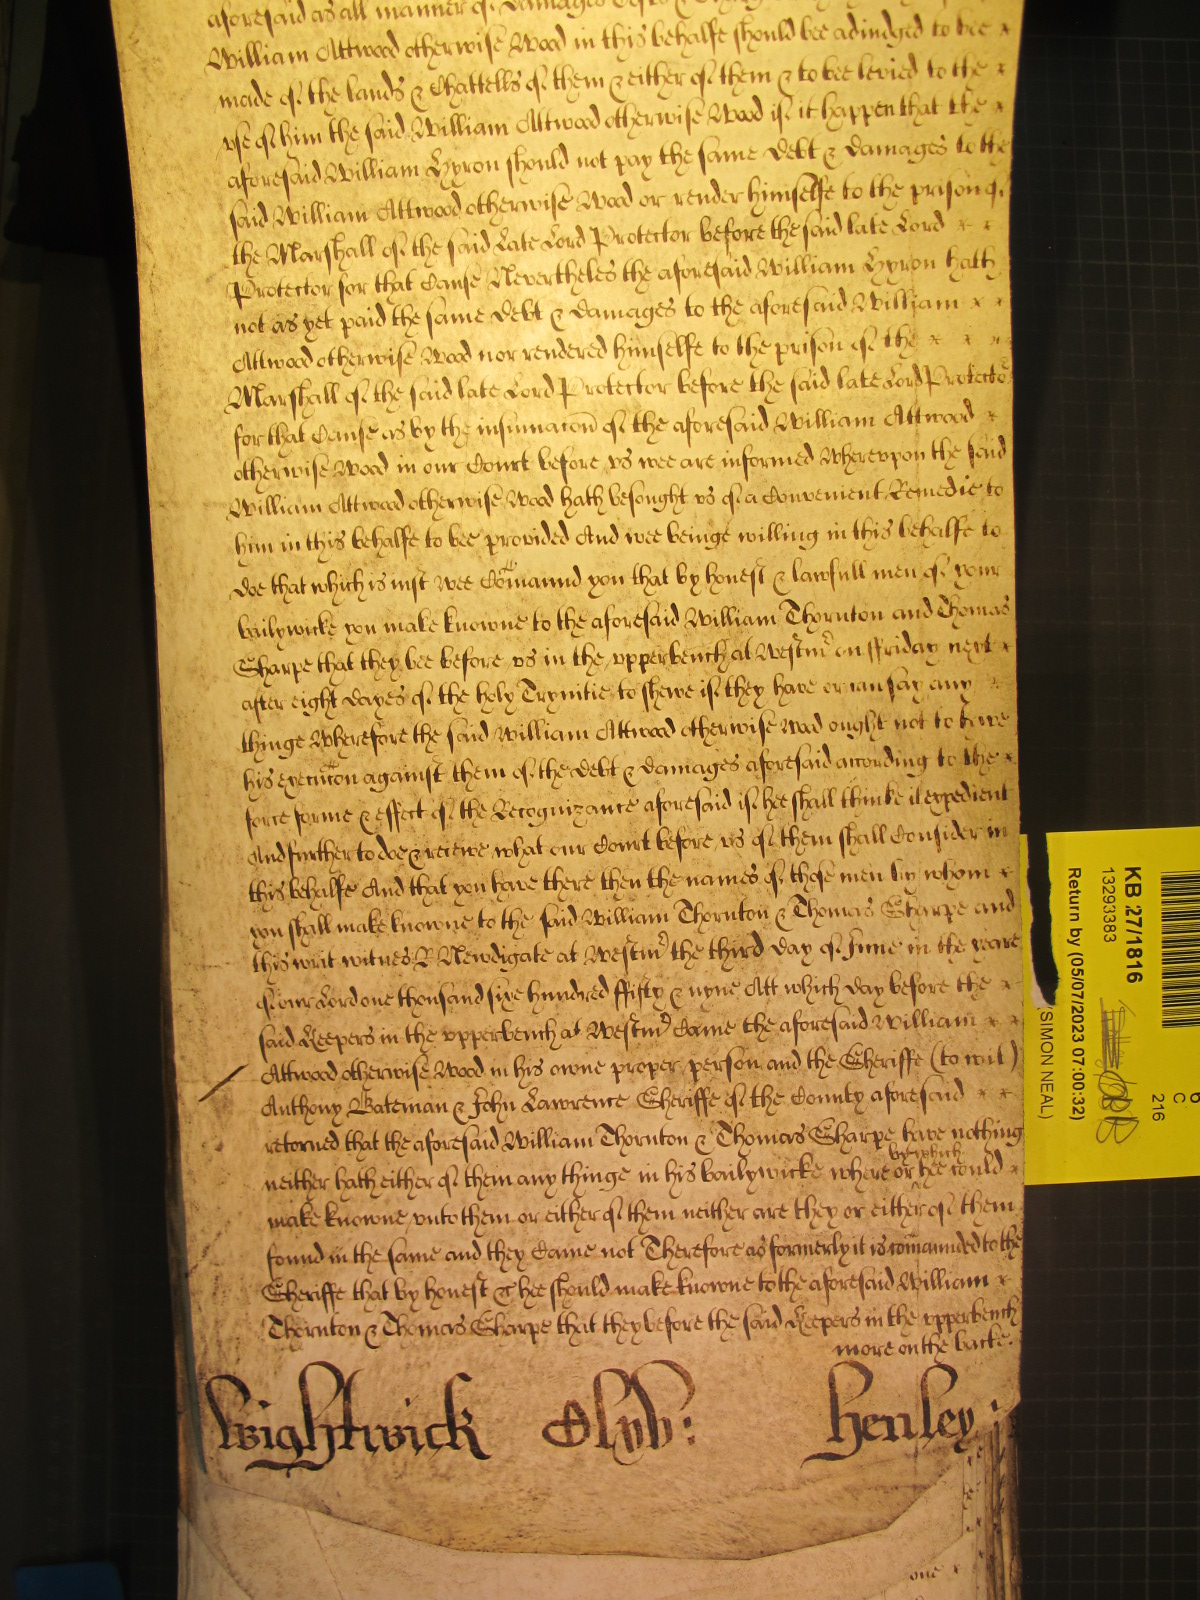 aforesaid as all manner of damages Costs &
William Attwood otherwise Wood in this behalfe should bee adiudged to bee
made of the lands & Chattells of them & either of them & to bee levied to the
vse of him the said William Attwood otherwise Wood if it happen that the
aforesaid William Hyron should not pay the same debt & damages to the
said William Attwood otherwise Wood or render himselfe to the prison of
the Marshall of the said late Lord Protector before the said late Lord
Protector for that Cause Nevertheles the aforesaid William Hyron hath
not as yet paid the same debt & damages to the aforesaid William
Attwood otherwise Wood nor rendered himselfe to the prison of the
Marshall of the said late Lord Protector before the said late Lord Protector
for that Cause as by the insinuacon of the aforesaid William Attwood
otherwise Wood in our Court before vs wee are informed Wherevpon the said
William Attwood otherwise Wood hath besought vs of a Convenient Remedie to
him in this behalfe to bee provided And wee beinge willing in this behalfe to
doe that which is iust wee Comaund you that by honest & lawfull men of your
bailywicke you make knowne to the aforesaid William Thornton and Thomas
Sharpe that they bee before vs in the vpperbench at Westmr on ffriday next
after eight dayes of the holy Trynitie to shewe if they have or can say any
thinge Wherefore the said William Attwood otherwise Wood ought not to have
his execucon against them of the debt & damages aforesaid according to the
force forme & effect of the Recognizance aforesaid if hee shall thinke it expedient
And further to doe & receive what our Court before vs of them shall Consider in
this behalfe And that you have there then the names of those men by whom
you shall make knowne to the said William Thornton & Thomas Sharpe and
this writ witnes R Newdigate at Westmr the third day of June in the yeare
of our Lord one thousand sixe hundred ffifty & nyne Att which day before the
said Keepers in the vpperbench at Westmr Came the aforesaid William
Attwood otherwise Wood in his owne proper person and the Sheriffe (to wit)
Anthony Bateman & John Lawrence Sheriffe of the County aforesaid
retorned that the aforesaid William Thornton & Thomas Sharpe have nothing
neither hath either of them any thinge in his bailywicke where or by which hee could
make knowne vnto them or either of them neither are they or either of them
found in the same and they Came not Therefore as formerly it is comaunded to the
Sheriffe that by honest &c hee should make knowne to the aforesaid William
Thornton & Thomas Sharpe that they before the said Keepers in the vpperbench
more on the backe.
Wightwick Henley
one
KB 27/1816
13293383
Return by (05/07/2023 07:00:32)
(SIMON NEAL)
216
C
6